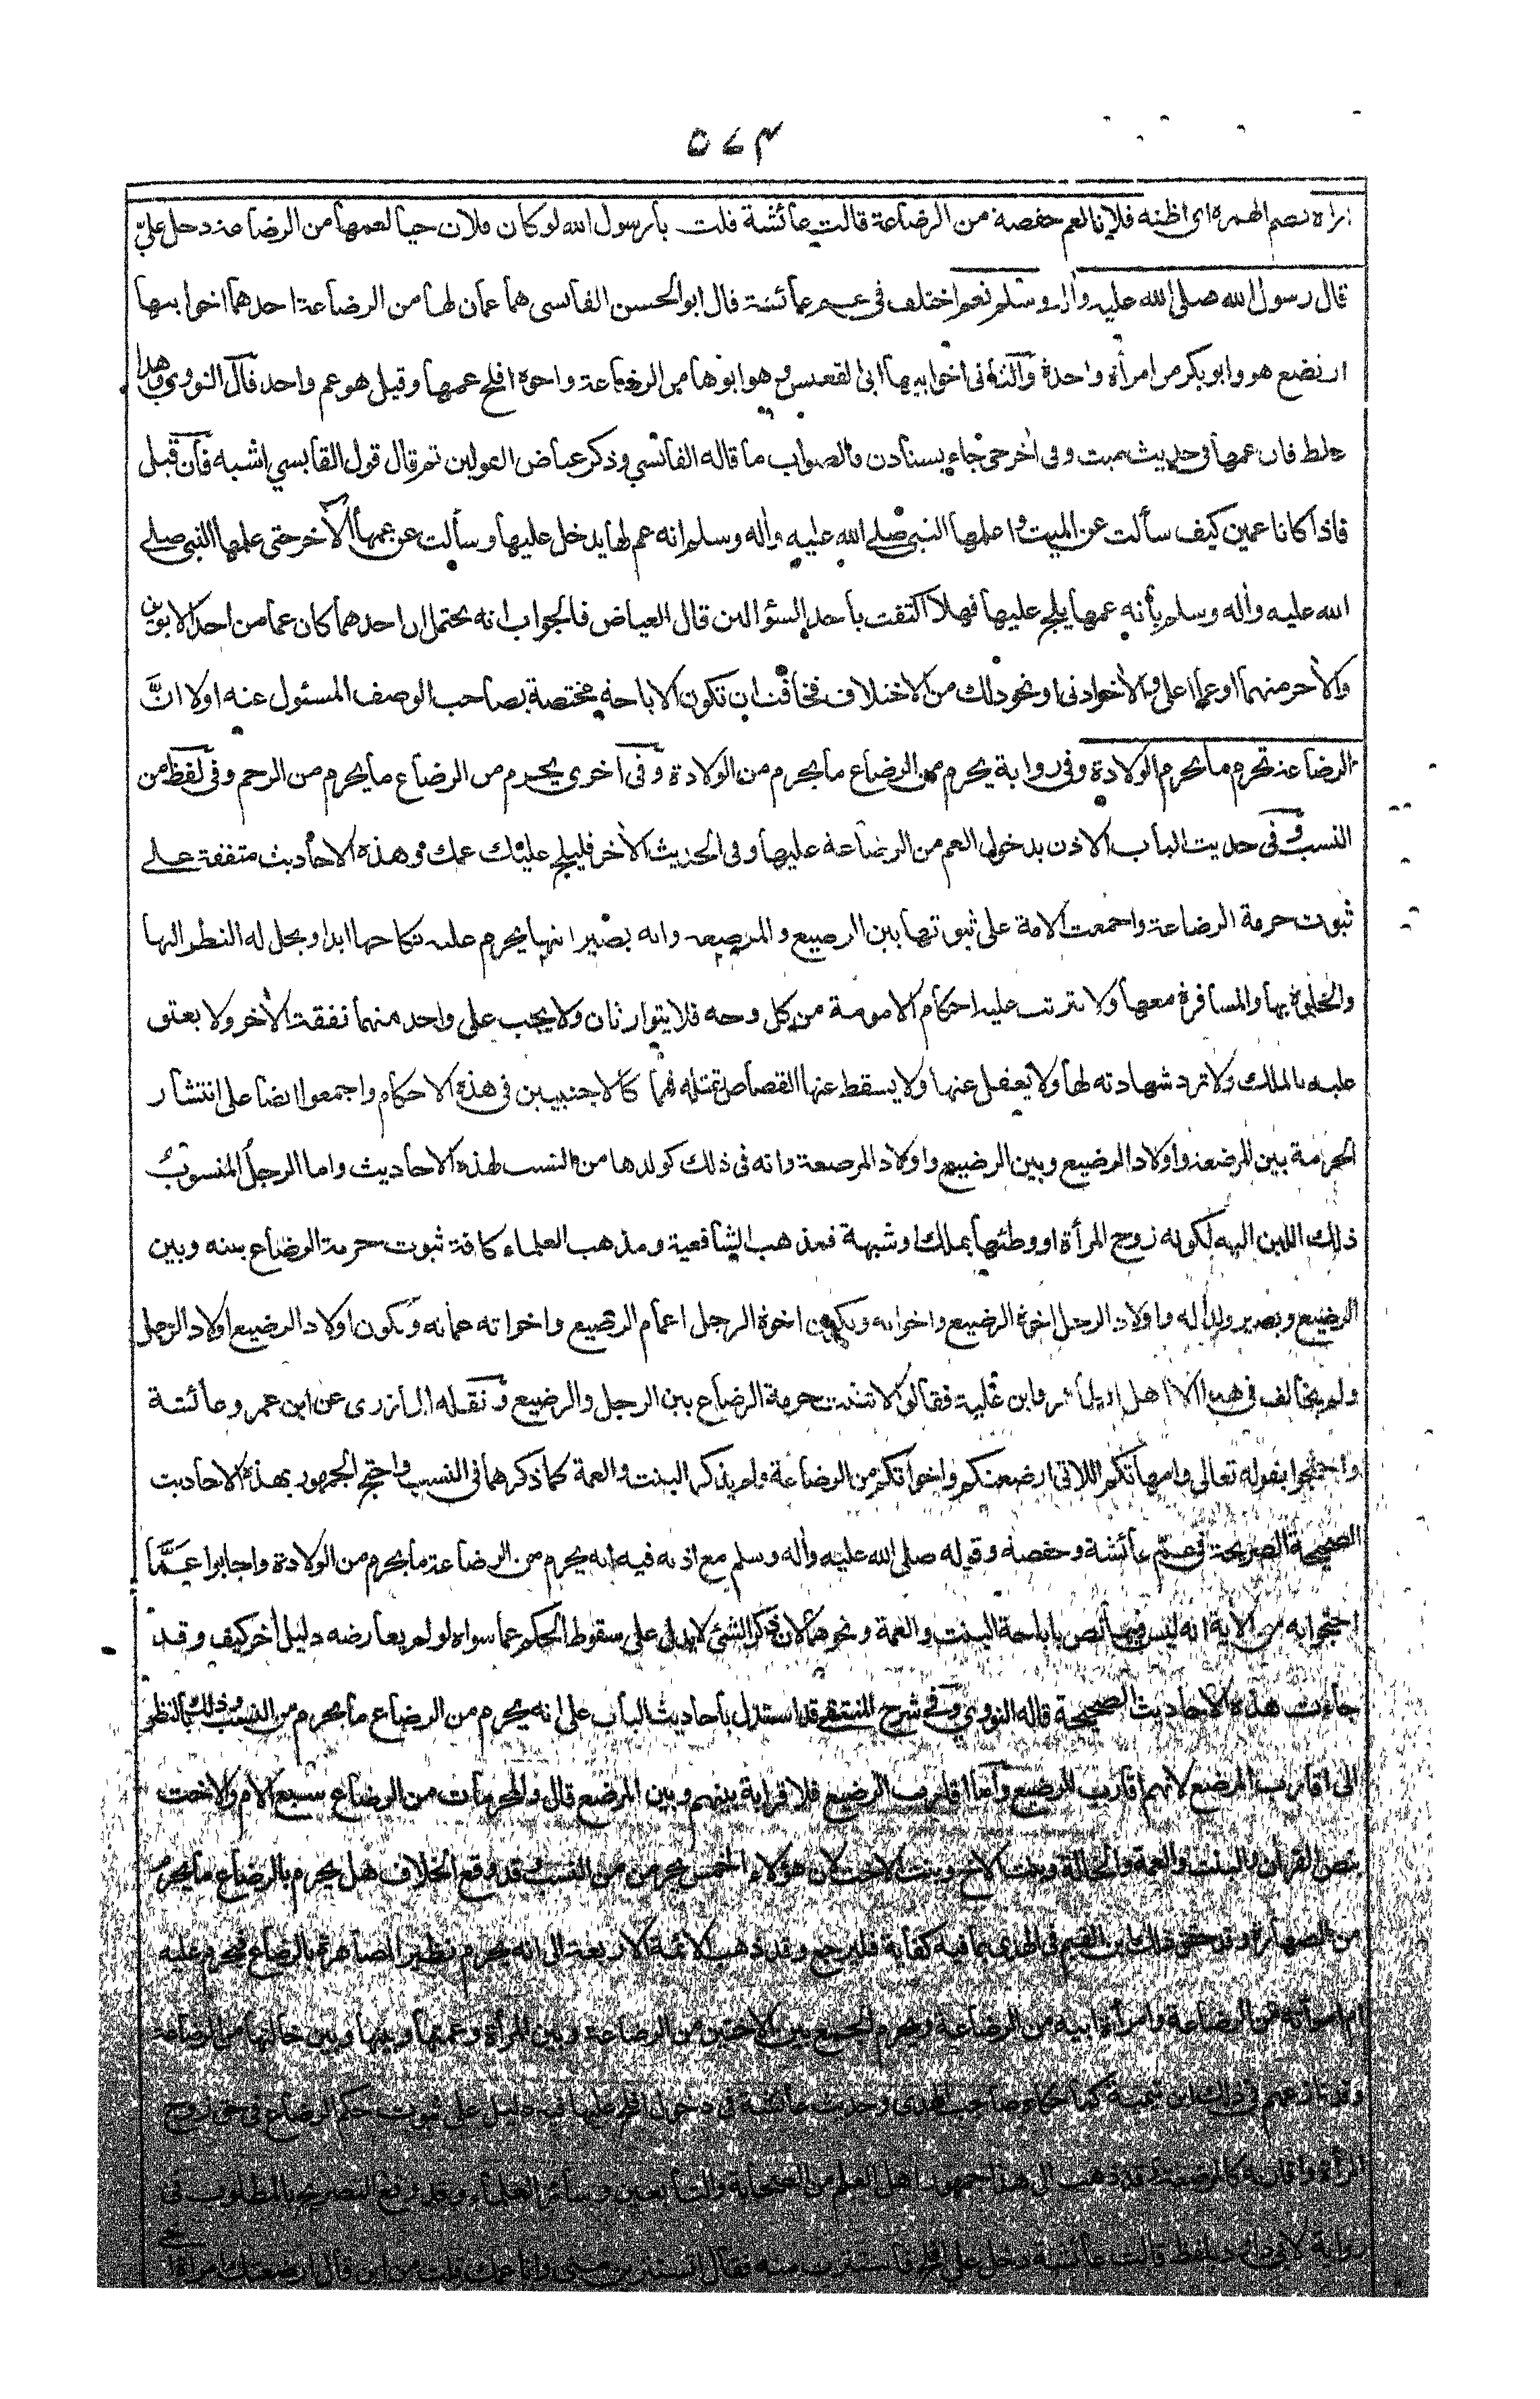 ٥٧٣
اراه بضم الهمزة اى اظنه فلانا لعم حفصة من الرضاعة قالت عائشة قلت يارسول الله لو كان فلان حيا لعمها من الرضاعة دخل علىّ
قال رسول الله صلى الله عليه واٰله وسلم نعم اختلف فى عم عائشة قال ابو الحسن القابسى هما عمان لها من الرضاعة احدهما اخو ابيها
ارتضع هو وابو بكر من امرأة واحدة والثانى اخو ابيها ابى القعيس وهو ابوها من الرضاعة واخوه افلح عمها وقيل هو عم واحد قال النووى وهذا
غلط فان عمها فى حديث ميت وفى اٰخر حى جاء يستأذن فالصواب ما قاله القابسى وذكر عياض القولين ثم قال قول القابسي اشبه فأن قيل
فاذا كانا عمين كيف سألت عن الميت واعلمها النبى صلے الله عليه واٰله وسلم انه عم لها يدخل عليها وسألت عن عمها الاٰخر حتى علمها النبى صلے
الله عليه واٰله وسلم بأنه عمها يلج عليها فهلا اكتفت بأحد السؤالين قال العياض فالجواب انه يحتمل ان احدهما كان عما من احد الابوين
والاٰخر منهما او عما اعلى والاٰخر ادنى او نحو ذلك من الاختلاف فخافت ان تكون الاباحة مختصة بصاحب الوصف المسئول عنه اولا انَّ
الرضاعة تحرم ما يحرم الولادة وفى رواية يحرم من الرضاع ما يحرم من الولادة وفى اخرى يحرم من الرضاع ما يحرم من الرحم وفى لفظ من
النسب وفى حديث الباب الاذن بدخول العم من الرضاعة عليها وفى الحديث الاٰخر فليلج عليك عمك وهذه الاحاديث متفقة علے
ثبوت حرمة الرضاعة واجمعت الامة على ثبوتها بين الرضيع والمرضعة وانه يصير ابنها يحرم عليه نكاحها ابدا ويحل له النظر اليها
والخلوة بها والمسافرة معها ولا يترتب عليه احكام الامومة من كل وجه فلا يتوارثان ولا يجب على واحد منهما نفقة الاٰخر ولا يعتق
عليه بالملك ولا ترد شهادته لها ولا يعقل عنها ولا يسقط عنها القصاص بقتله فهما كالاجنبيين فى هذه الاحكام واجمعوا ايضا على انتشار
الحرمة بين المرضعة واولاد الرضيع وبين الرضيع واولاد المرضعة وانه فى ذلك كولدها من النسب لهذه الاحاديث واما الرجل المنسوب
ذلك اللبن اليه لكونه زوج المرأة او وطئها بملك او شبهة فمذهب الشافعية ومذهب العلماء كافة ثبوت حرمة الرضاع بينه وبين
الرضيع ويصير ولدا له واولاد الرجل اخوة الرضيع واخواته وتكون اخوة الرجل اعمام الرضيع واخواته عماته وتكون اولاد الرضيع اولاد الرجل
ولم يخالف فى هذا الا اهل الظاهر وابن علية فقالوا لا تثبت حرمة الرضاع بين الرجل والرضيع ونقله المازرى عن ابن عمر وعائشة
واحتجوا بقوله تعالى وامهاتكم اللاتى ارضعنكم واخواتكم من الرضاعة ولم يذكر البنت والعمة كما ذكرهما فى النسب واحتج الجمهور بهذه الاحاديث
الصحيحة الصريحة فى عم عائشة وحفصة وقوله صلى الله عليه واٰله وسلم مع اذنه فيه انه يحرم من الرضاعة ما يحرم من الولادة واجابوا عَمَّا
احتجوا به من الاٰية انه ليس فيها نص باباحة البنت والعمة ونحوهما لان ذكر الشئ لا يدل على سقوط الحكم عما سواه لو لم يعارضه دليل اٰخر كيف وقد
جاءت هذه الاحاديث الصحيحة قاله النووى وفى شرح المنتقے قد استدل بأحاديث الباب على انه يحرم من الرضاع ما يحرم من النسب وذلك بالنظر
الى اقارب المرضع لانهم اقارب للرضيع واما اقارب الرضيع فلا قرابة بينهم وبين المرضع قال والمحرمات من الرضاع سبع الام والاخت
بنص القراٰن والبنت والعمة والخالة وبنت الاخ وبنت الاخت لان هؤلاء الخمس يحرمن من النسب وقد وقع الخلاف هل يحرم بالرضاع ما يحرم
من الصهار وقد حقق ذلك ابن القيم فى الهدى بما فيه كفاية فليرجع وقد ذهب الائمة الاربعة الى انه يحرم نظير المصاهرة بالرضاع فيحرم عليه
ام امرأته من الرضاعة وامرأة ابيه من الرضاعة ويحرم الجمع بين الاختين من الرضاعة وبين المرأة وعمتها وبينها وبين خالتها من الرضاعة
وقد نازعهم فى ذلك ابن تيمية كما حكاه صاحب الهدى وحديث عائشة فى دخول افلح عليها فيه دليل على ثبوت حكم الرضاع فى حق زوج
المرأة واقاربه كالمرضعة وقد ذهب الى هذا جمهور اهل العلم من الصحابة والتابعين وسائر العلماء وقد وقع التصريح بالمطلوب فى
رواية لابى داود بلفظ قالت عائشة دخل على افلح فاستترت منه فقال اتستترين منى وانا عمك قلت من اين قال ارضعتك امرأة